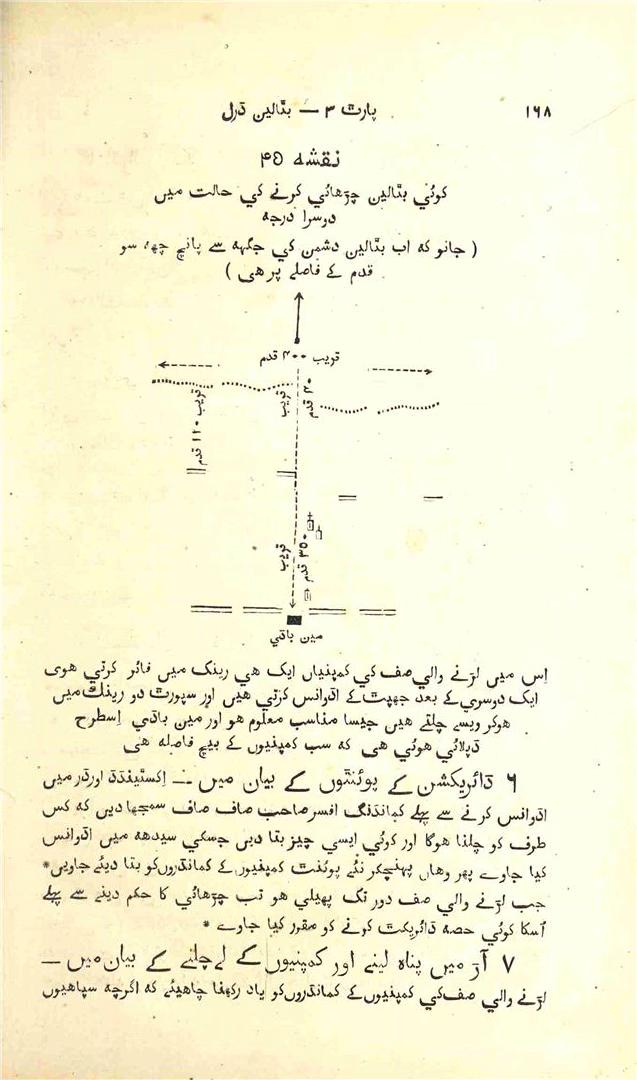 ۱۶۸
پارٹ ۳ — بٹالین ڈرل
نقشہ ۴۵
کوئي بٹالین چڑھائي کرنے کي حالت میں
دوسرا درجہ
( جانو کہ اب بٹالین دشمن کي جگہہ سے پانچ چھہ سو
قدم کے فاصلے پر ھی )
قریب ۴۰۰ قدم
قریب ۲۰ قدم
قریب ۱۲۰ قدم
قریب ۳۵۰ قدم
مین باڈي
اِس میں لڑنے والي صف کي کمپنیاں ایک ھي رینک میں فائر کرتي ھوی
ایک دوسري کے بعد جھپٹ کے اڈوانس کرتي ھیں اور سپورٹ دو رینک میں
ھوکر ویسے چلتے ھیں جیسا مناسب معلوم ھو اور مین باڈي اِسطرح
ڈپلائي ھوئي ھی کہ سب کمپنیوں کے بیچ فاصلہ ھی
۶ ڈائریکشن کے پوئنٹوں کے بیان میں — اِکسٹینڈڈ اورڈر میں
اڈوانس کرنے سے پہلے کمانڈنگ افسر صاحب صاف صاف سمجھا دیں کہ کس
طرف کو چلنا ھوگا اور کوئي ایسي چیز بتا دیں جسکي سیدھہ میں اڈوانس
کیا جاوے پھر وھاں پہنچکر نئے پوئنٹ کمپنیوں کے کمانڈروں کو بتا دیئے جاویں*
جب لڑنے والي صف دور تک پھیلي ھو تب چڑھائي کا حکم دینے سے پہلے
اُسکا کوئي حصہ ڈائریکٹ کرنے کو مقرر کیا جاوے *
۷ آڑ میں پناہ لینے اور کمپنیوں کے لے چلنے کے بیان میں —
لڑنے والي صف کي کمپنیوں کے کمانڈروں کو یاد رکھنا چاھیئے کہ اگرچہ سپاھیوں